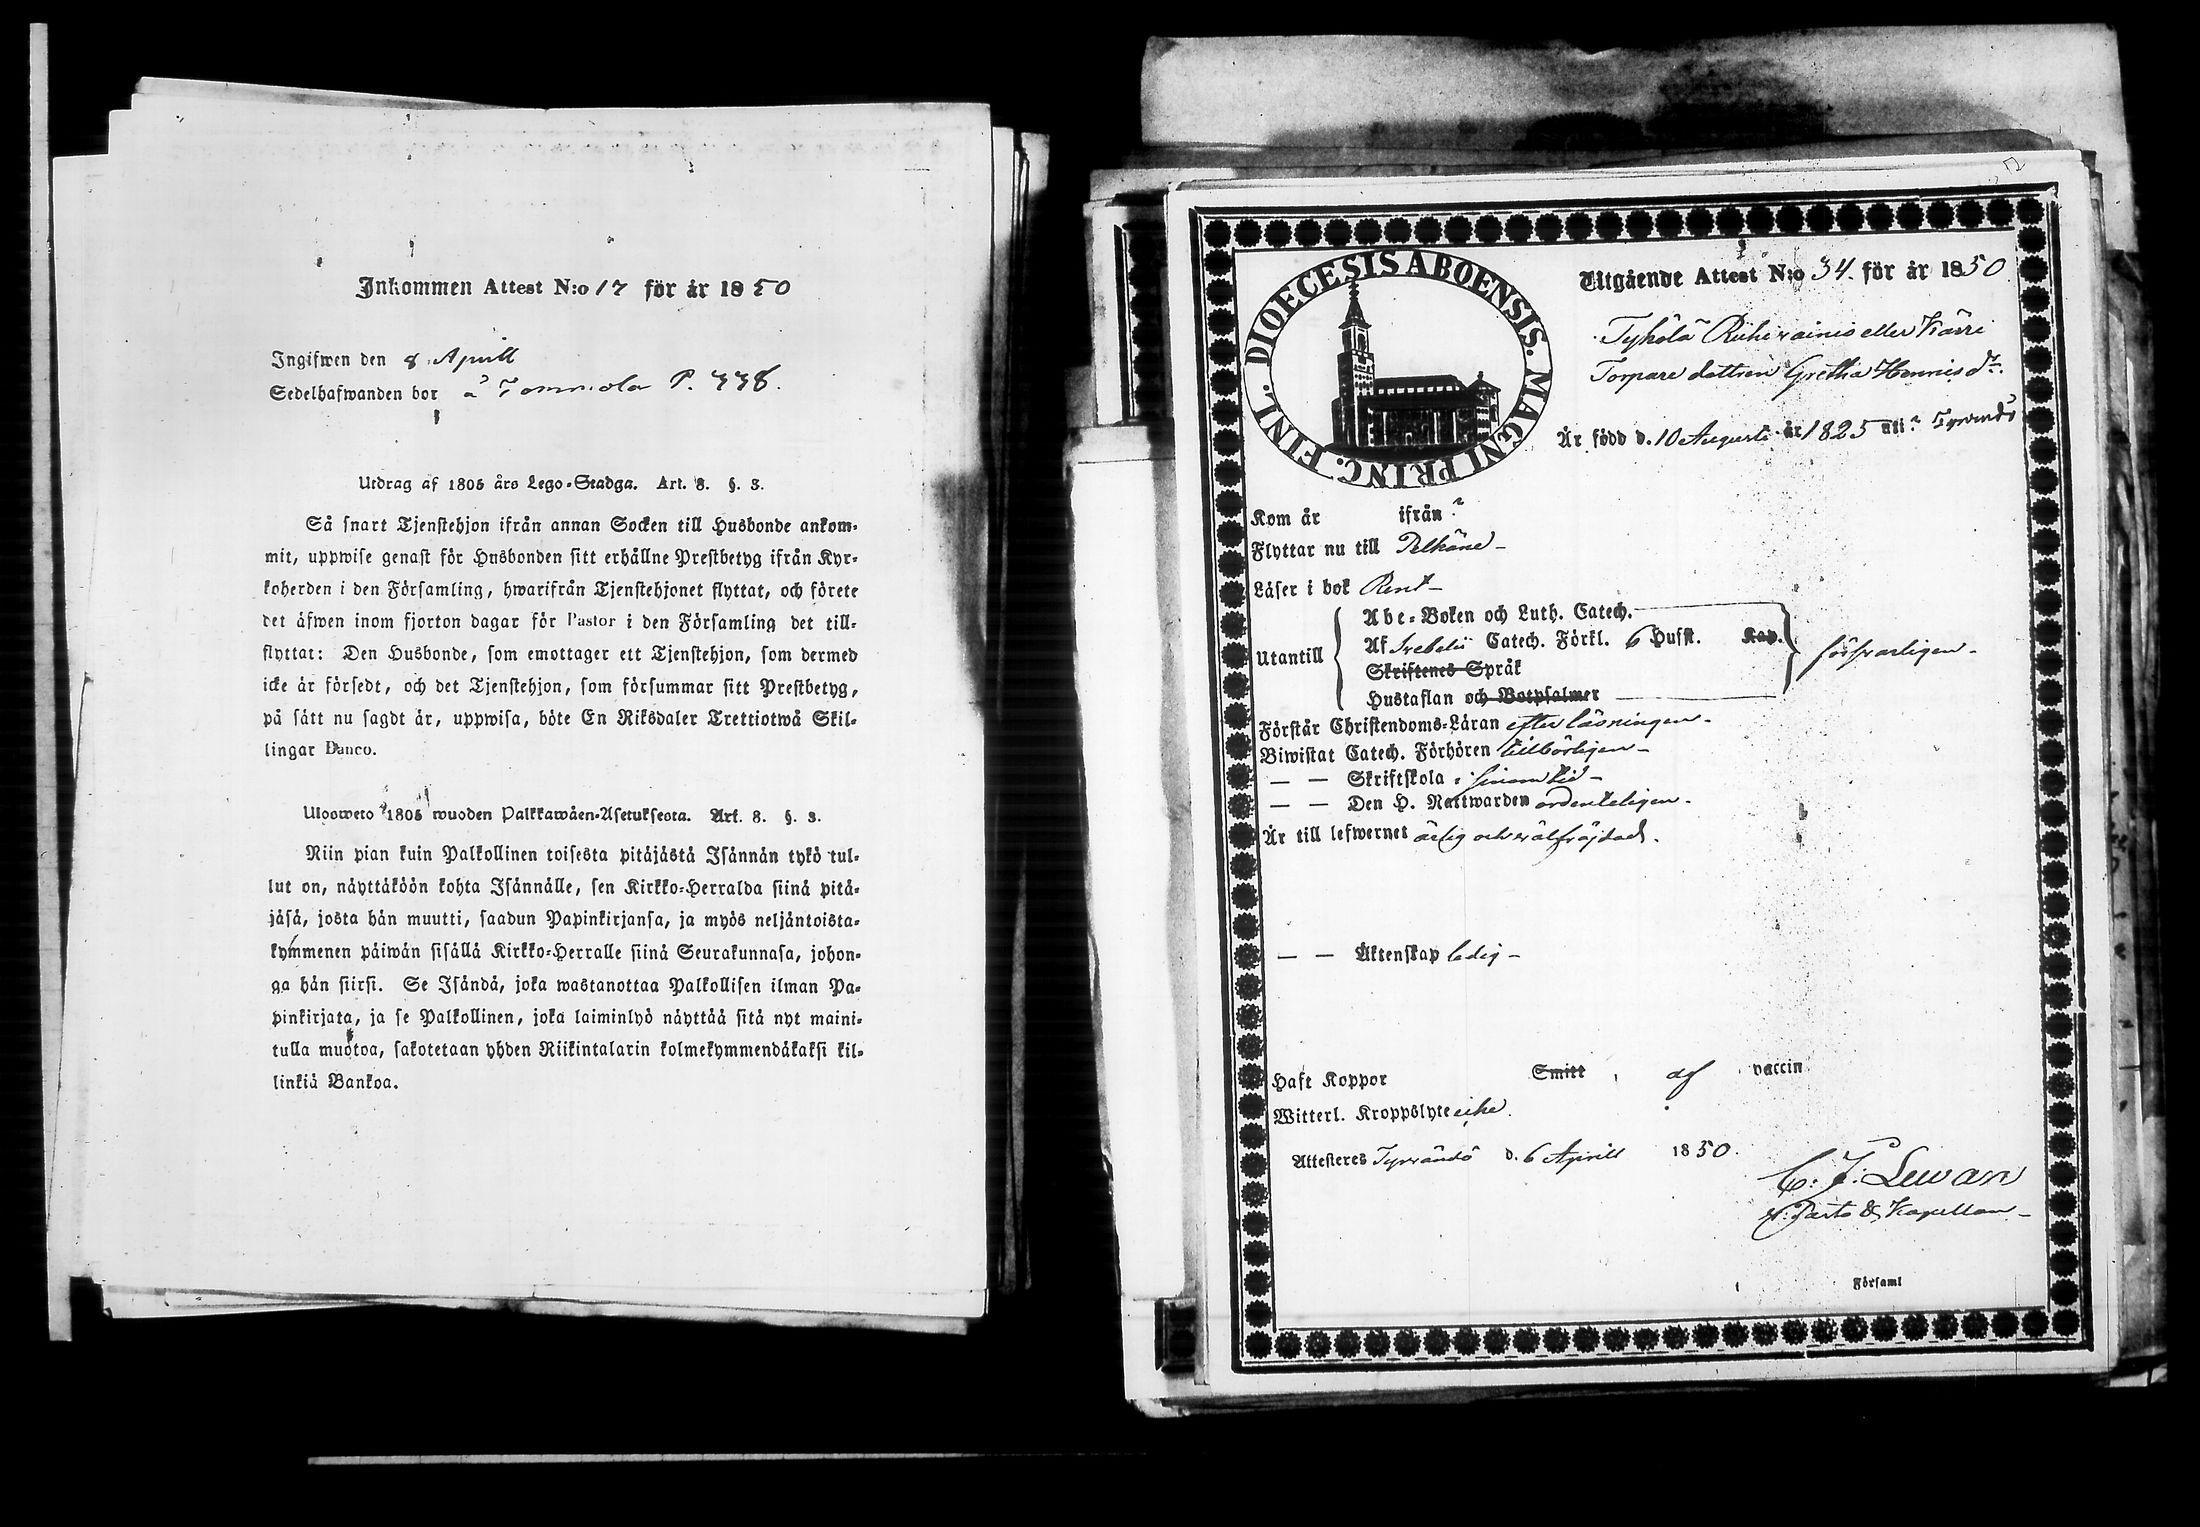 Inkommen Attest N:o 17 för år 1850
Ingifwen den 8 Aprill
Sedelhafwanden bor å Tommola P. 338.
Utdrag af 1805 års Lego-Stadga. Art. 8. §. 3.
Så snart Tjenstehjon ifrån annan Socken till Husbonde ankom-
mit, uppwise genast för Husbonden sitt erhållne Prestbetyg ifrån Kyr-
koherden i den Församling, hwarifrån Tjenstehjonet flyttat, och förete
det äfwen inom fjorton dagar för Pastor i den Församling det till-
flyttat: Den Husbonde, som emottager ett Tjenstehjon, som dermed
icke är försedt, och det Tjenstehjon, som försummar sitt Prestbetyg,
på sätt nu sagdt är, uppwisa, böte En Riksdaler Trettiotwå Skil-
lingar Banco.
Ulosweto 1805 wuoden Palkkawäen-Asetuksesta. Art. 8. §. 3.
Niin pian kuin Palkollinen toisesta pitäjästä Isännän tykö tul-
lut on, näyttäköön kohta Isännälle, sen Kirkko-Herralda siinä pitä-
jäsä, josta hän muutti, saadun Papinkirjansa, ja myös neljäntoista-
kymmenen päiwän sisällä Kirkko-Herralle siinä Seurakunnasa, johon-
ga hän siirsi. Se Isändä, joka wastanottaa Palkollisen ilman Pa-
pinkirjata, ja se Palkollinen, joka laiminlyö näyttää sitä nyt maini-
tulla muotoa, sakotetaan yhden Riikintalarin kolmekymmendäkaksi kil-
linkiä Bankoa.
DIOECESIS ABOENSIS. MAGNI PRINC. FINL.
Utgående Attest N:o 34. för år 1850
Torpare dottren Gretha Henricsdr.
Är född d. 10 Augusti år 1825 uti Tyrvändö
Kom år ifrån
Flyttar nu till Pelkäne -
Läser i bok Rent -
Utantill
Abc-Boken och Luth. Catech.
Af Svebelii Catech. Förkl. 6 Hufst. Kap.
Skriftenes Språk
Hustaflan och Botpsalmer
försvarligen -
Förstår Christendoms-Läran efter läsningen -
Biwistat Catech. Förhören tillbörligen -
— — Skriftskola i sinom tid -
— — Den H. Nattwarden ordenteligen -
Är till lefwernet ärlig och välfräjdad.
— — Äktenskap ledig -
Haft Koppor Smitt, af vaccin
Witterl. Kroppslyte icke.
Attesteres Tyrvändö d. 6 Aprill 1850.
C. J. Lewan
Kapellan -
Församl